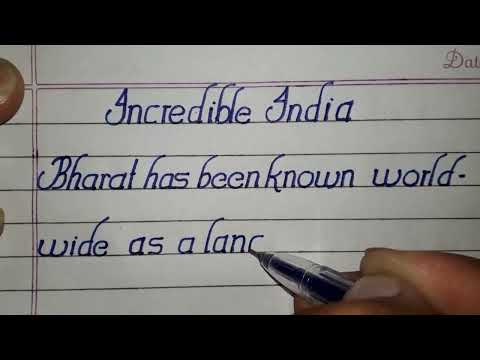 Dat
Incredible India
Bharat has been known world-
wide as a lanc